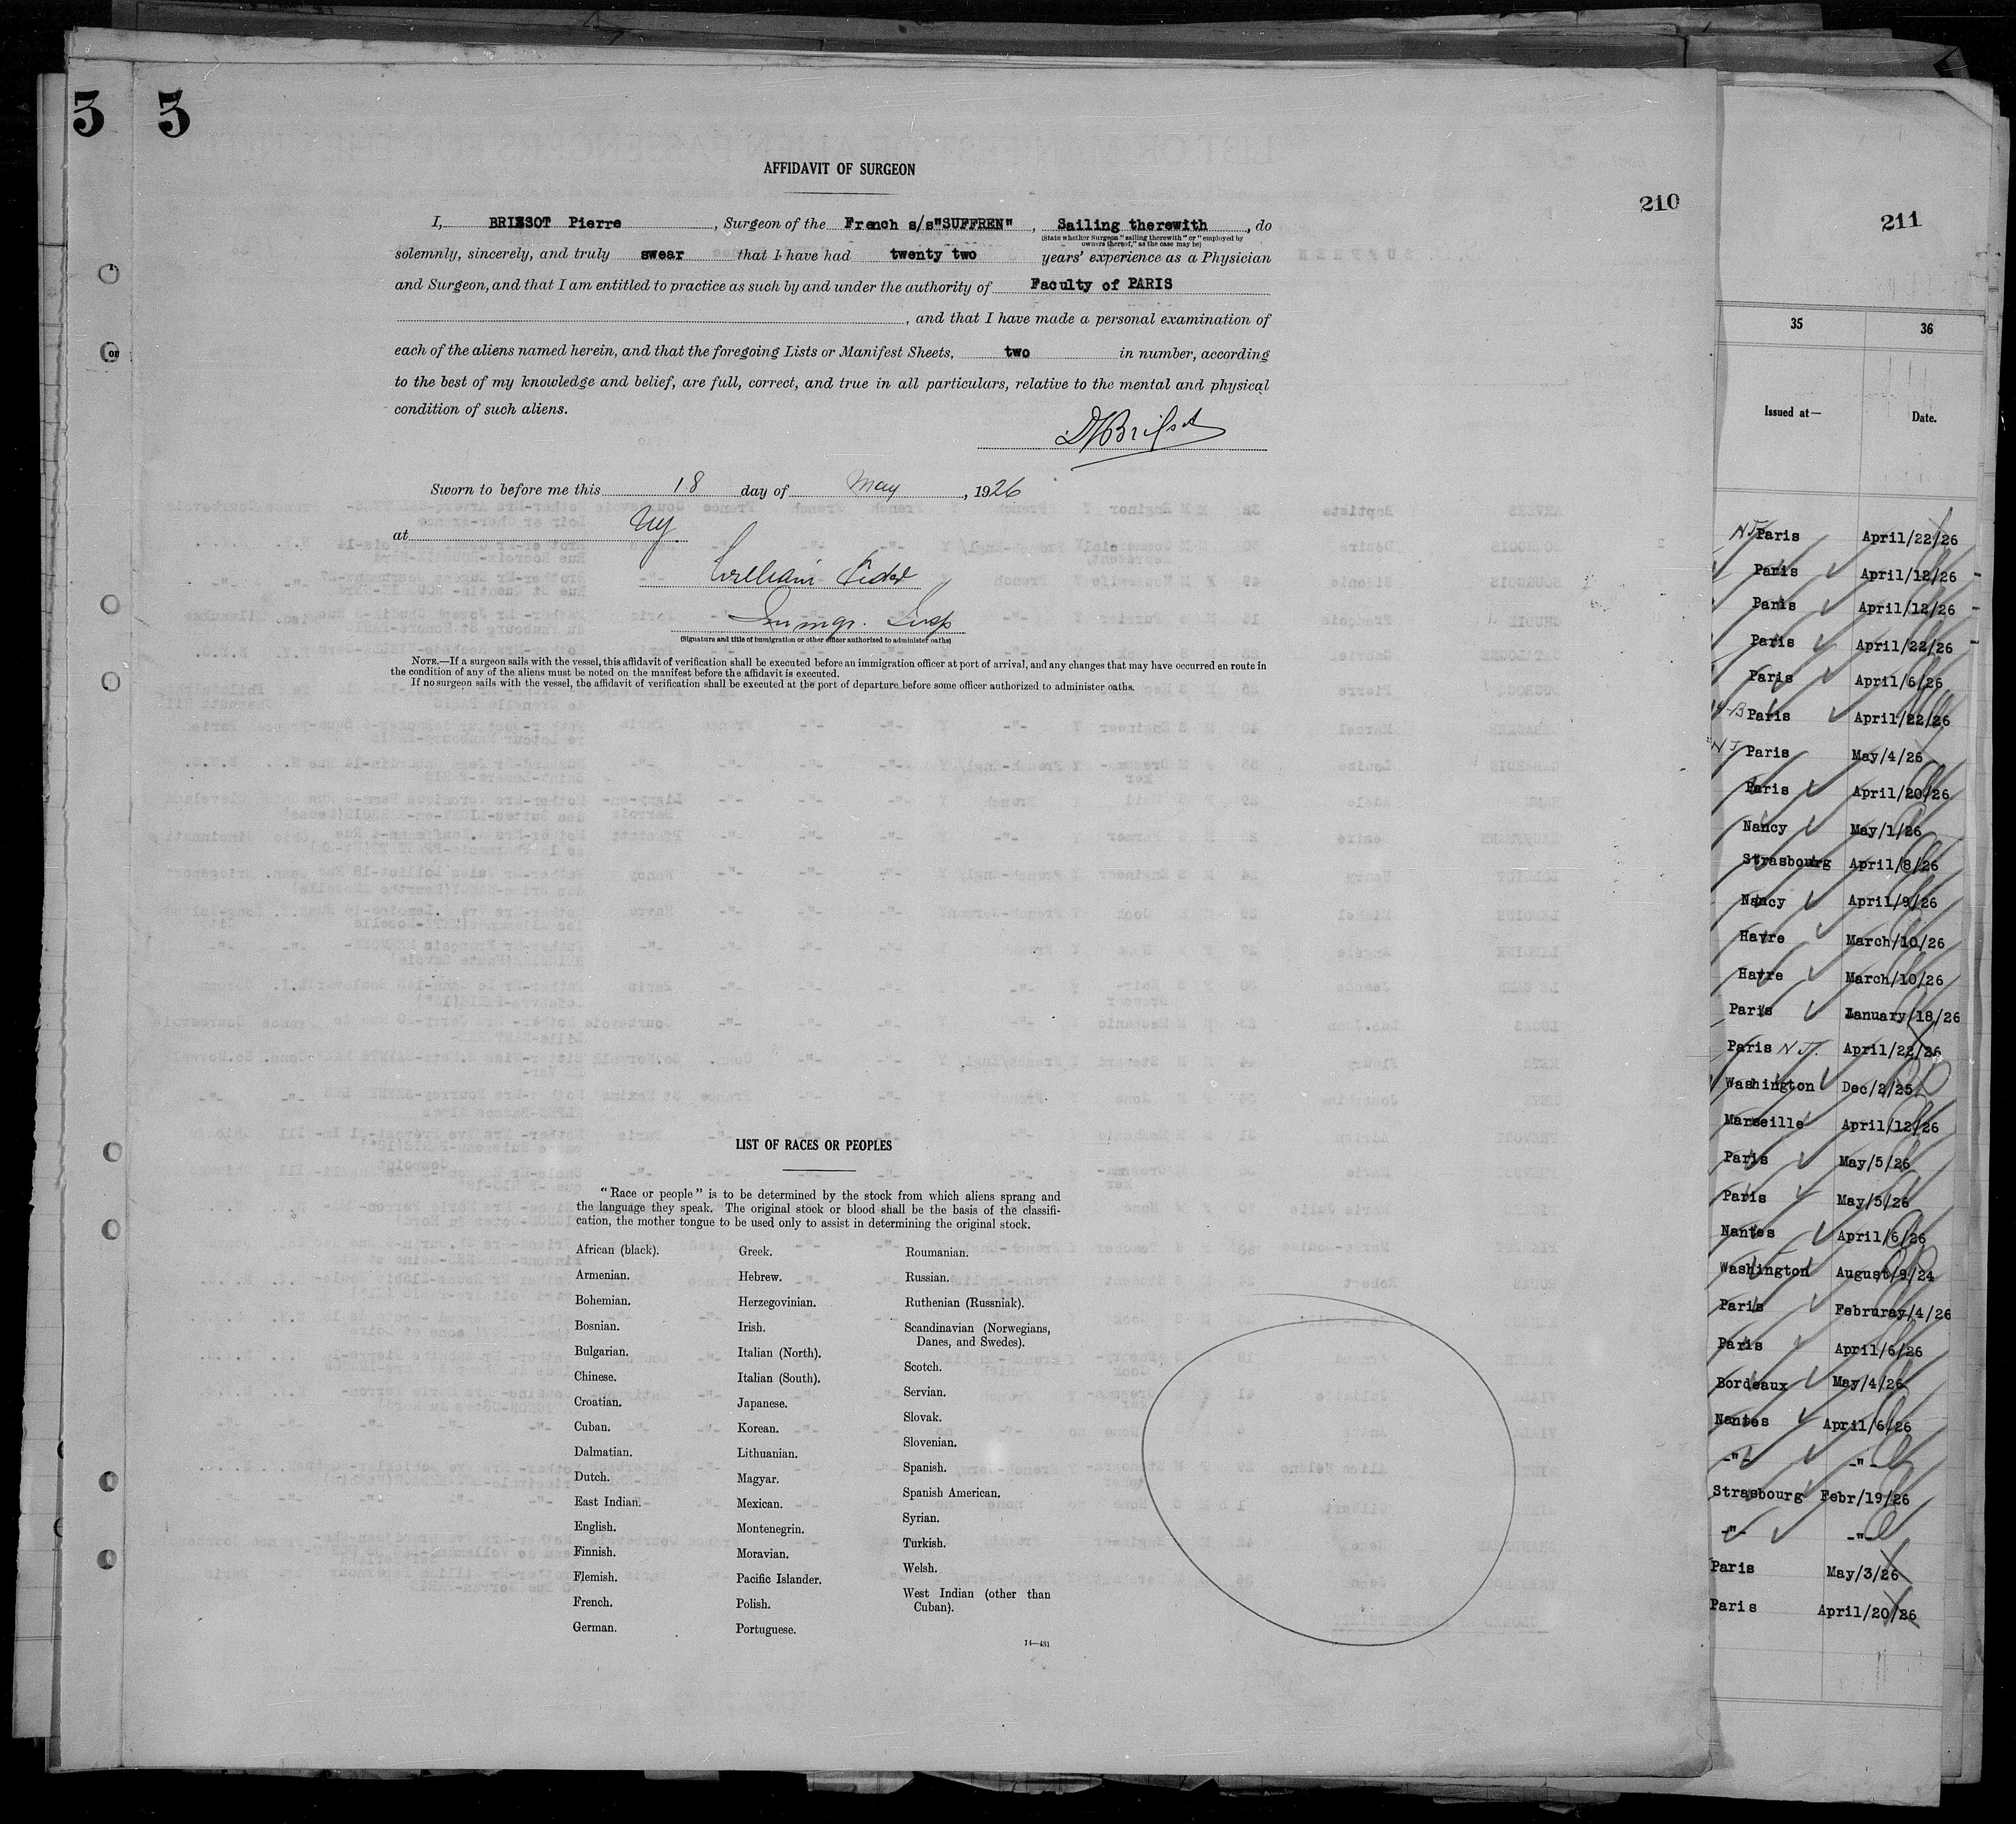 3 3
AFFIDAVIT OF SURGEON
210
I, BRISSOT Pierre , Surgeon of the French s/s"SUFFREN" , Sailing therewith , do
(State whether Surgeon "sailing therewith" or "employed by
owners thereof," as the case may be)
solemnly, sincerely, and truly swear that I have had twenty two years' experience as a Physician
and Surgeon, and that I am entitled to practice as such by and under the authority of Faculty of PARIS
, and that I have made a personal examination of
each of the aliens named herein, and that the foregoing Lists or Manifest Sheets, two in number, according
to the best of my knowledge and belief, are full, correct, and true in all particulars, relative to the mental and physical
condition of such aliens.
Sworn to before me this 18 day of May , 1926
at NY
William
Immgr. Insp
(Signature and title of immigration or other officer authorized to administer oaths)
NOTE.—If a surgeon sails with the vessel, this affidavit of verification shall be executed before an immigration officer at port of arrival, and any changes that may have occurred en route in
the condition of any of the aliens must be noted on the manifest before the affidavit is executed.
If no surgeon sails with the vessel, the affidavit of verification shall be executed at the port of departure before some officer authorized to administer oaths.
LIST OF RACES OR PEOPLES
"Race or people" is to be determined by the stock from which aliens sprang and
the language they speak. The original stock or blood shall be the basis of the classifi-
cation, the mother tongue to be used only to assist in determining the original stock.
African (black).
Armenian.
Bohemian.
Bosnian.
Bulgarian.
Chinese.
Croatian.
Cuban.
Dalmatian.
Dutch.
East Indian.
English.
Finnish.
Flemish.
French.
German.
Greek.
Hebrew.
Herzegovinian.
Irish.
Italian (North).
Italian (South).
Japanese.
Korean.
Lithuanian.
Magyar.
Mexican.
Montenegrin.
Moravian.
Pacific Islander.
Polish.
Portuguese.
Roumanian.
Russian.
Ruthenian (Russniak).
Scandinavian (Norwegians,
Danes, and Swedes).
Scotch.
Servian.
Slovak.
Slovenian.
Spanish.
Spanish American.
Syrian.
Turkish.
Welsh.
West Indian (other than
Cuban).
14—431
211
35 36
Issued at— Date.
NJ Paris April/22/26
Paris April/12/26
Paris April/12/26
Paris April/22/26
Paris April/6/26
Paris April/22/26
NJ Paris May/4/26
Paris April/20/26
Nancy May/1/26
Strasbourg April/8/26
Nancy April/9/26
Havre March/10/26
Havre March/10/26
Paris January/18/26
Paris NJ. April/22/26
Washington Dec/2/25
Marseille April/12/26
Paris May/5/26
Paris May/5/26
Nantes April/6/26
Washington August/9/24
Paris Februray/4/26
Paris April/6/26
Bordeaux May/4/26
Nantes April/6/26
-"- -"-
Strasbourg Febr/19/26
-"- -"-
Paris May/3/26
Paris April/20/26